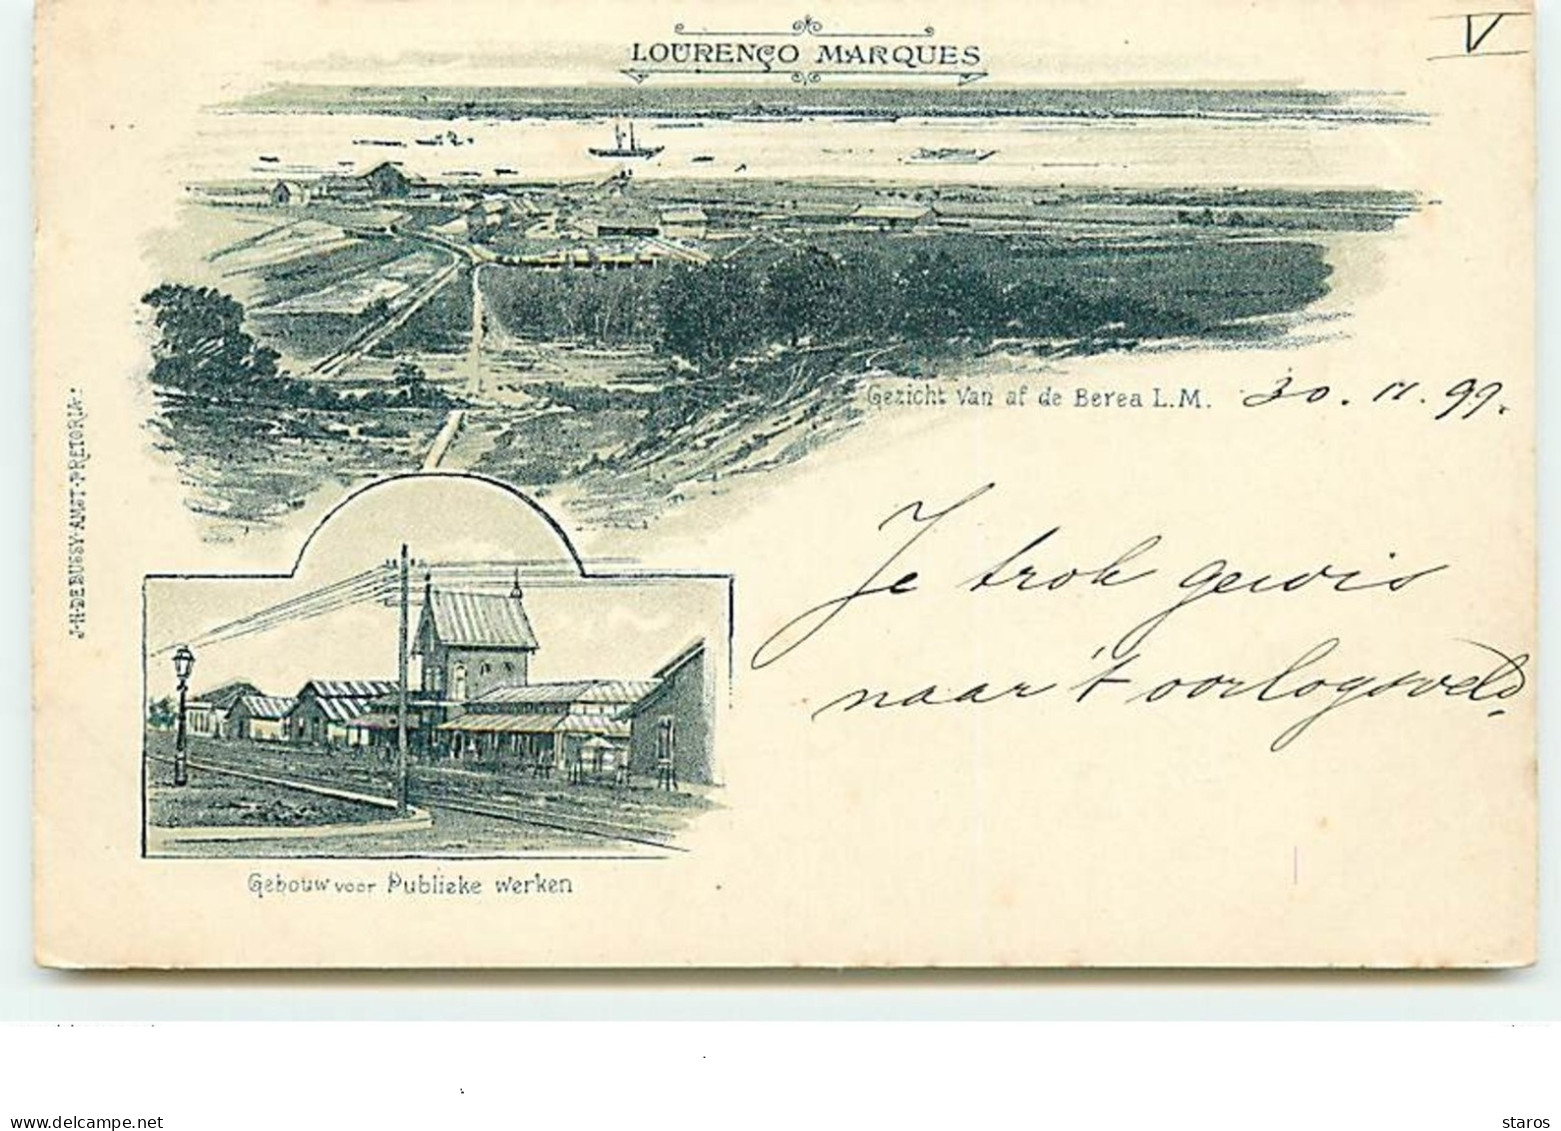 V
LOURENÇO MARQUES
Gezicht van af de Berea L.M. 30.11.99.
Je trok gewis
naar 't oorlogsveld.
J.H. DE BUSSY. AMST. PRETORIA.
Gebouw voor Publieke Werken
delcampe.net
staros